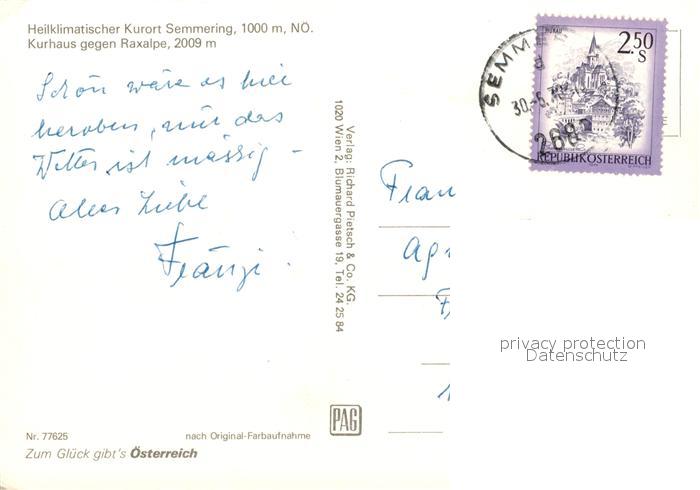 Heilklimatischer Kurort Semmering, 1000 m, NÖ.
Kurhaus gegen Raxalpe, 2009 m
Schön wäre es hier
heroben, nur das
Wetter ist mässig –
Alles Liebe
Fränzi.
Verlag: Richard Pietsch & Co. KG.
1020 Wien 2, Blumauergasse 19, Tel. 24 25 84
SEMM
30.-6.
2680
MURAU
2.50
S
REPUBLIK ÖSTERREICH
Frau
Ag
privacy protection
Datenschutz
PAG
Nr. 77625
nach Original-Farbaufnahme
Zum Glück gibt's Österreich